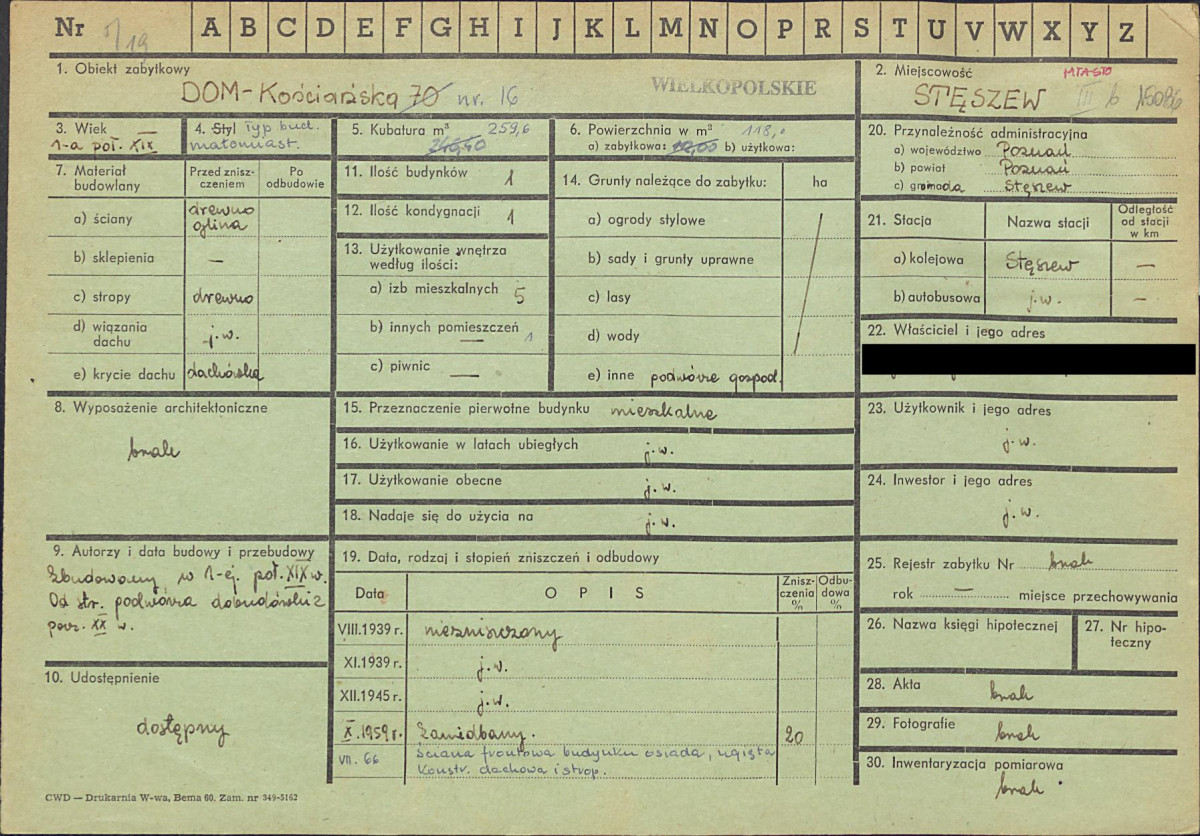 Nr 1/19 A B C D E F G H I J K L M N O P R S T U V W X Y Z
1. Obiekt zabytkowy
DOM-Kościańska 70 nr. 16
WIELKOPOLSKIE
2. Miejscowość
MIASTO
STĘSZEW III b
3. Wiek
1-a poł. XIX
4. Styl Typ bud.
małomiast.
5. Kubatura m³ 259,6
6. Powierzchnia w m² 118,0
a) zabytkowa: b) użytkowa:
7. Materiał budowlany
Przed zniszczeniem
Po odbudowie
a) ściany drewno
glina
b) sklepienia —
c) stropy drewno
d) wiązania dachu j.w.
e) krycie dachu dachówka
8. Wyposażenie architektoniczne
brak
9. Autorzy i data budowy i przebudowy
Zbudowany w 1-ej poł. XIX w.
Od str. podwórza dobudówki z
pocz. XX w.
10. Udostępnienie
dostępny
11. Ilość budynków 1
12. Ilość kondygnacji 1
13. Użytkowanie wnętrza
według ilości:
a) izb mieszkalnych 5
b) innych pomieszczeń — 1
c) piwnic —
14. Grunty należące do zabytku: ha
a) ogrody stylowe
b) sady i grunty uprawne
c) lasy
d) wody
e) inne podwórze gospod.
15. Przeznaczenie pierwotne budynku mieszkalne
16. Użytkowanie w latach ubiegłych j.w.
17. Użytkowanie obecne j.w.
18. Nadaje się do użycia na j.w.
19. Data, rodzaj i stopień zniszczeń i odbudowy
Data OPIS Zniszczenia % Odbudowa %
VIII.1939 r. niezniszczony
XI.1939 r. j.w.
XII.1945 r. j.w.
X.1959 r. Zaniedbany. 20
VII. 66 Ściana frontowa budynku osiada, ugięta
Konstr. dachowa i strop.
20. Przynależność administracyjna
a) województwo Poznań
b) powiat Poznań
c) gromada Stęszew
21. Stacja Nazwa stacji Odległość od stacji w km
a) kolejowa Stęszew —
b) autobusowa j.w. —
22. Właściciel i jego adres
23. Użytkownik i jego adres
j.w.
24. Inwestor i jego adres
j.w.
25. Rejestr zabytku Nr brak
rok — miejsce przechowywania
26. Nazwa księgi hipotecznej
27. Nr hipoteczny
28. Akta brak
29. Fotografie brak
30. Inwentaryzacja pomiarowa
brak
CWD — Drukarnia W-wa, Bema 60. Zam. nr 349-5162